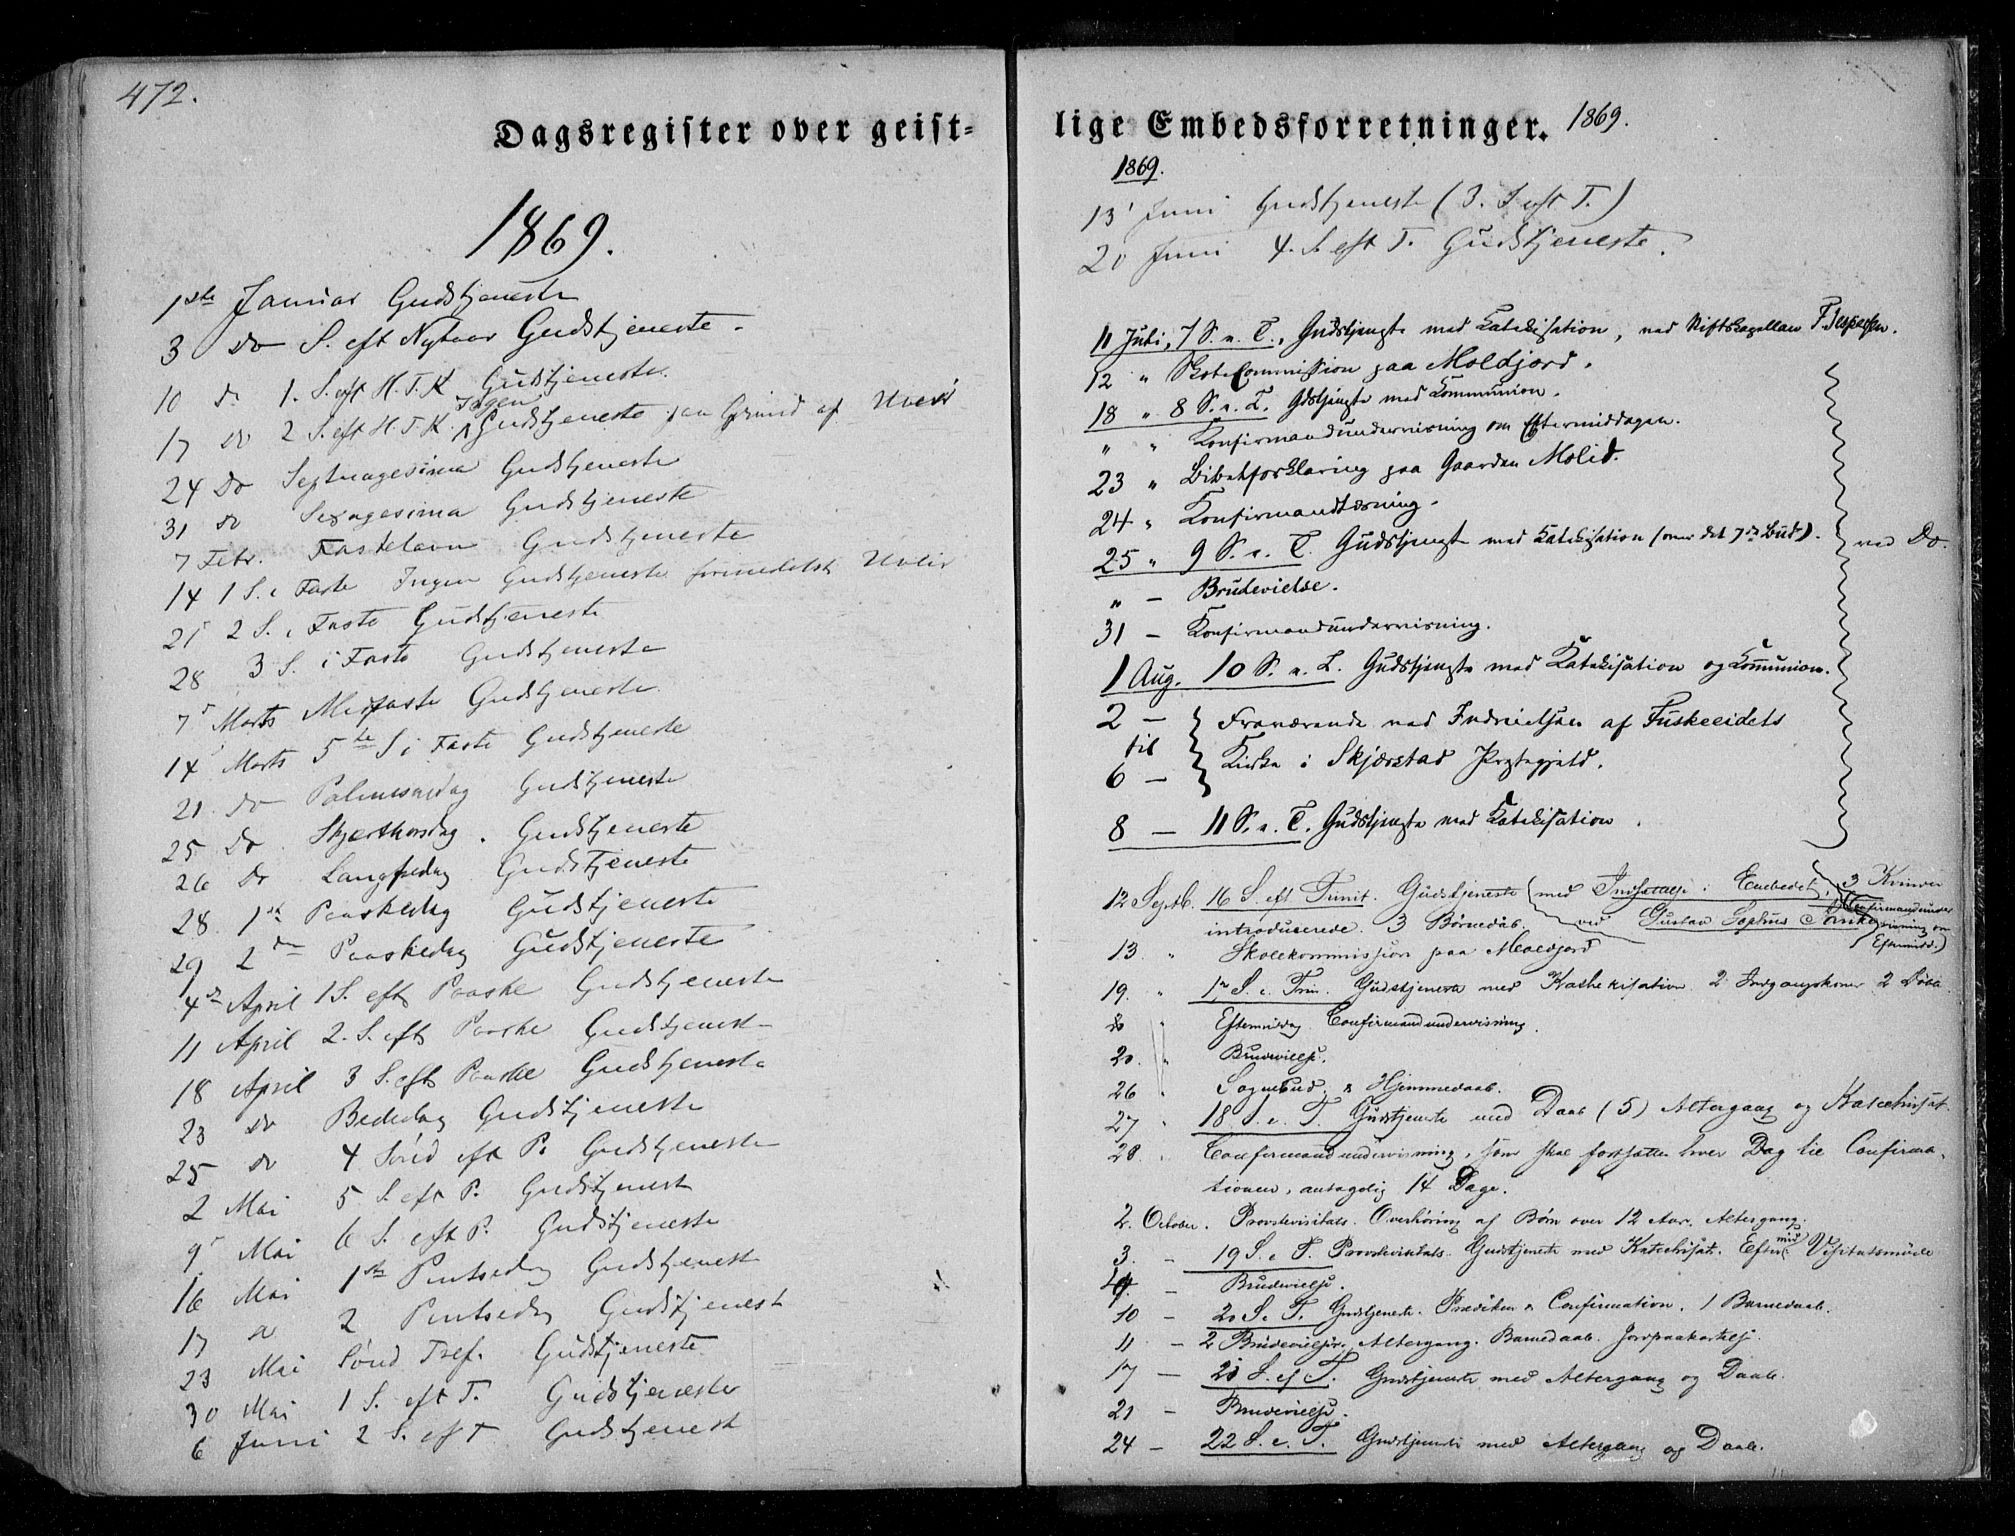 472.
Dagsregister over geist=
1869.
1ste Januar Gudstjeneste
3 do S. eft Nytaar Gudstjeneste.
10 do 1. S. eft H. T. K Gudstjeneste.
17 do 2 S. eft H. T. K. Ingen Gudstjeneste paa Grund af Uveir
24 do Septuagesima Gudstjeneste
31 do Sexagesima Gudstjeneste
7 Febr. Fastelavn Gudstjeneste
14 1 S. i Faste Ingen Gudstjeneste formedelst Uveir
21 2 S. i Faste Gudstjeneste
28 3 S. i Faste Gudstjeneste
7 Marts Midfaste Gudstjeneste
14 Marts 5te S i Faste Gudstjeneste
21 do Palmesøndag Gudstjeneste
25 do Skjærthorsdag. Gudstjeneste
26 do Langfredag Gudstjeneste
28 1ste Paaskedag Gudstjeneste
29 2den Paaskedag Gudstjeneste
4de April 1 S. eft Paaske Gudstjeneste
11 April 2. S. eft Paaske Gudstjeneste
18 April 3 S. eft Paaske Gudstjeneste
23 do Bededag Gudstjeneste
25 do 4 Sønd eft P. Gudstjeneste
2 Mai 5 S. eft P. Gudstjenest
9 Mai 6 S. eft P. Gudstjeneste
16 Mai 1ste Pintsedag Gudstjenest
17 do 2 Pintsedag Gudstjenest
23 Mai Sønd Tref. Gudstjeneste
30 Mai 1 S. eft T. Gudstjeneste
6 Juni 2 S. eft T Gudstjenest
lige Embedsforretninger. 1869.
1869.
13 Juni Gudstjeneste (3. S eft T.)
20 Juni 4. S. eft T. Gudstjeneste.
11 Juli, 7 S. e. T., Gudstjeneste med Katekisation, ved Stiftskapellan F. Jespersen.
12 " Skolecommission paa Moldjord.
18 " 8 S. e. T. Gdstjeneste med Kommunion.
" " Konfirmandundervisning om Eftermiddagen.
23 " Bibelforklaring paa Gaarden Molid.
24 " Konfirmandlæsning.
25 " 9 S. e. T. Gudstjeneste med Katekisation (over det 7de Bud). ved Do.
" — Brudevielse.
31 — Konfirmandundervisning.
1 Aug. 10 S. e. T. Gudstjeneste med Katekisation og Kommunion.
2 — Fraværende ved Indvielsen af Fuskeeidets
til
6 — Kirke i Skjærstad Præstegjeld.
8 — 11 S. e. T. Gudstjeneste med Katekisation.
12 Septb. 16 S. eft Trinit. Gudstjeneste med Indsættelse i Embedet, 3 Kvinder
introducerede. 3 Børnedåb. ved Gustav Sophus (Confirmandundervisning om Eftermidd.)
13. " Skolekommission paa Moldjord
19. " 17 S. e. Trin. Gudstjeneste med Kathekisation 2 Indgangskoner 2 Døbte
" Eftermiddag Confirmandundervisning.
20. " Brudevielse.
26 " Sognebud & Hjemmedaab.
27 " 18 S. e. T. Gudstjeneste med Daab (5) Altergang og Katechisat.
28 " Confirmandundervisning, som skal fortsættes hver Dag til Confirma-
tionen, antagelig 14 Dage.
2. October. Provstevisitats. Overhøring af Børn over 12 Aar. Altergang.
3. — 19 S. e T. Provstevisitats. Gudstjeneste med Katechisat. Eftermid Visitatsmøde
4. — Brudevielse.
10 — 20 S. T. Gudstjeneste. Prædiken & Confirmation. 1 Barnedaab.
11 — 2 Brudevielser, Altergang. Barnedaab. Jordpaakastelse.
17 — 21 S. ef T. Gudstjeneste med Altergang og Daab.
21 — Brudevielse.
24 — 22 S. e. T. Gudstjeneste med Altergang og Daab.